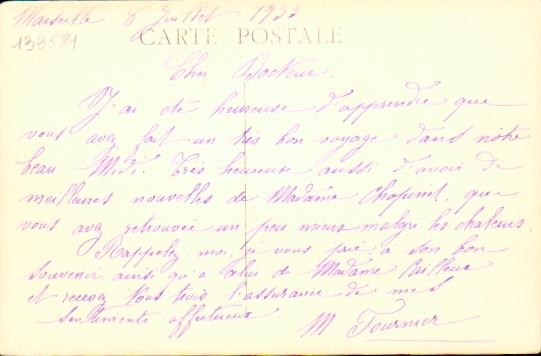 Marseille 6 Juillet 1933
133581
CARTE POSTALE
Cher Docteur.
J'ai été heureuse d'apprendre que
vous avez fait un très bon voyage dans notre
beau Midi. Très heureuse aussi d'avoir de
meilleures nouvelles de Madame que
vous avez retrouvée un peu mieux malgré les chaleurs.
Rappelez moi, je vous prie, à son bon
souvenir ainsi qu'à celui de Madame
et recevez vous trois l'assurance de mes
sentiments affectueux
M. Fournier